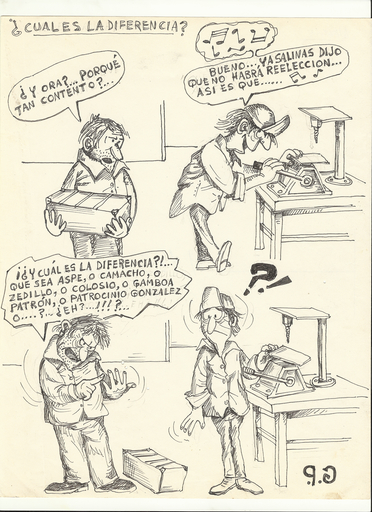 ¿CUAL ES LA DIFERENCIA?
¿Y ORA?... PORQUÉ
TAN CONTENTO?...
BUENO... YA SALINAS DIJO
QUE NO HABRÁ REELECCION...
ASI ES QUE......
¡¿Y CUÁL ES LA DIFERENCIA?!...
QUE SEA ASPE, O CAMACHO, O
ZEDILLO, O COLOSIO, O GAMBOA
PATRÓN, O PATROCINIO GONZALEZ
O....?... ¿EH?...!!!?...
?!
G.P